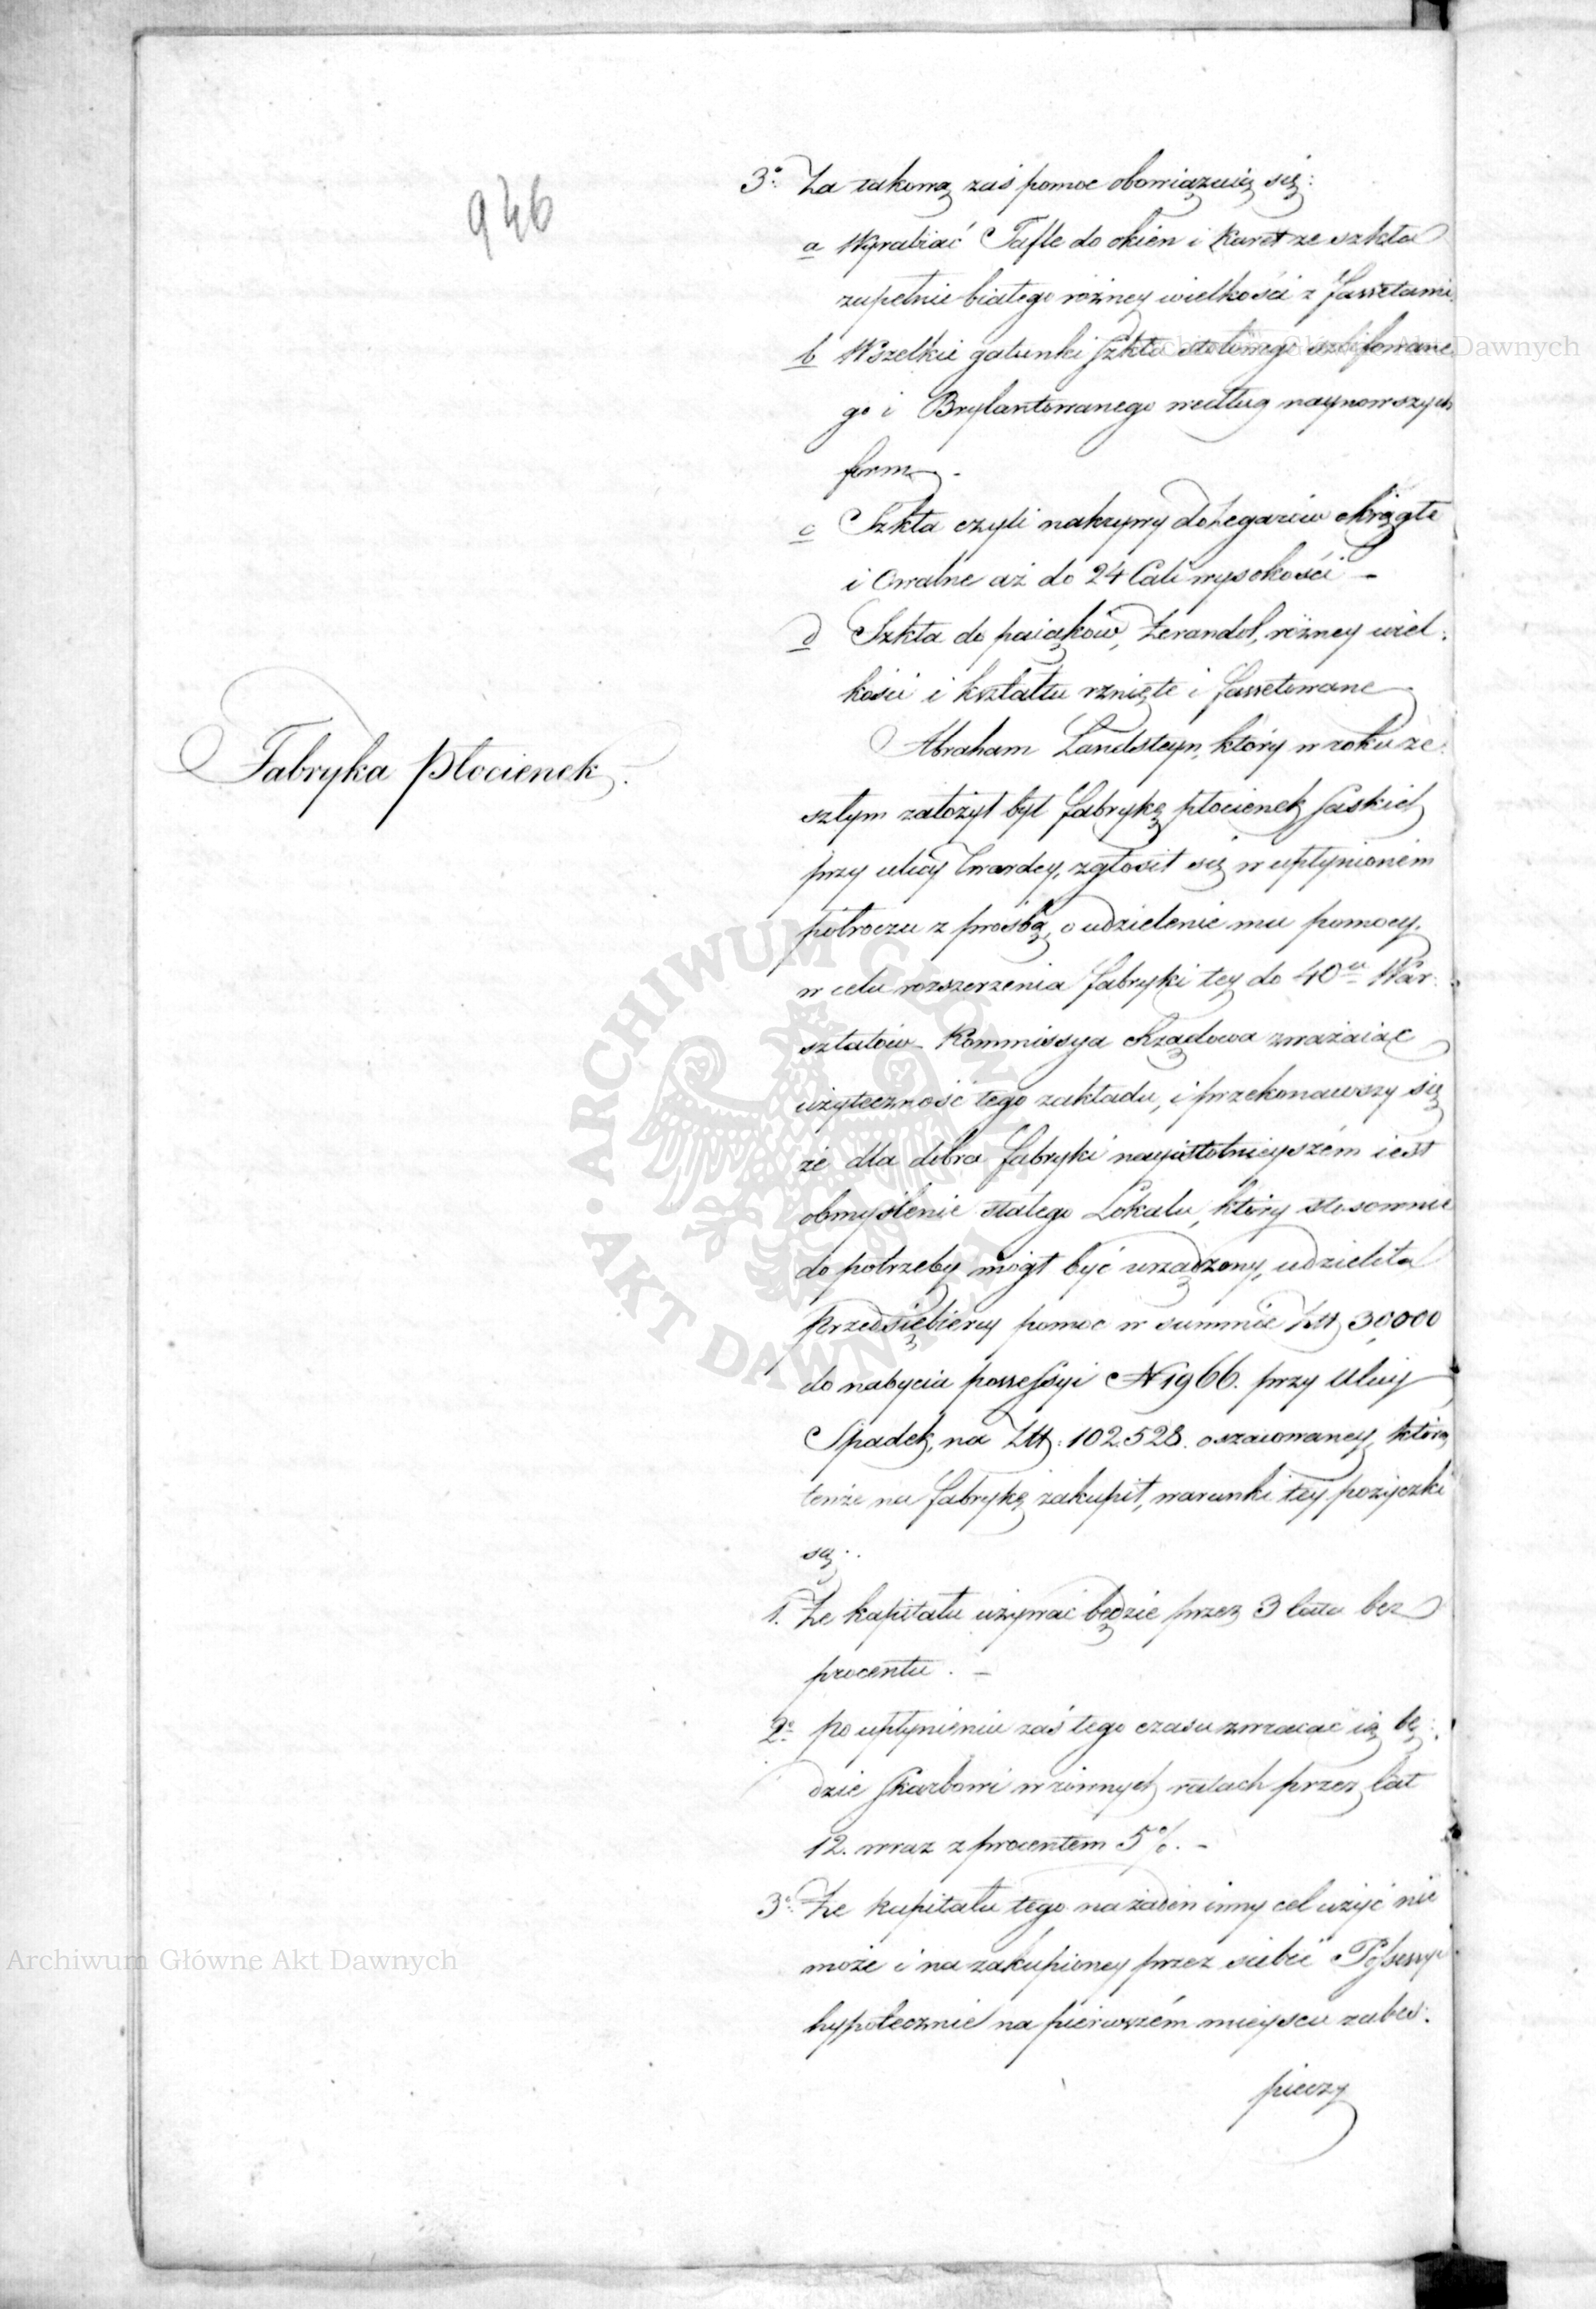 946
3° Za takową zaś pomoc obowiązuią się:
a Wyrabiać Tafle do okien i karet ze szkła
zupełnie białego rożney wielkości z fassetami
b Wszelkie gatunki szkła stołowego szlifowane
go i Brylantowanego według naynowszych
form. -
c Szkła czyli nakrywy do Zegarów okrągłe
i Owalne aż do 24 Cali wysokości -
d Szkła do paiąków, Żerandol, rożney wiel:
kości i kształtu rznięte i fassetowane
Fabryka Płocienek.
Abraham Landsteyn, który w roku ze:
szłym założył był fabrykę płocienek saskich
przy ulicy Twardey, zgłosił się w upłynionem
półroczu z prośbą, o udzielenie mu pomocy,
w celu rozszerzenia fabryki tey do 40u War:
sztatów. Kommissya Rządowa zważaiąc
użyteczność tego zakładu, i przekonawszy się
że dla dobra fabryki nayistotnieyszém iest
obmyślenie stałego Lokalu, który stosownie
do potrzeby mógł być urządzony, udzieliła
Przedsiębiercy pomoc w summie Złł 30,000
do nabycia possessyi N 1966. przy Ulicy
Spadek, na Złł: 102.528. oszacowaney, którą
tenże na fabrykę zakupił, warunki tey pożyczki
są:
1. Że kapitału używać będzie przez 3 lata bez
procentu. -
2° po upłynieniu zaś tego czasu zwracać ią bę:
dzie Skarbowi w równych ratach przez lat
12. wraz z procentem 5%. -
3° Że kapitału tego na żaden inny cel użyć nie
może i na zakupioney przez siebie Possessyi
hypotecznie na pierwszém mieyscu zabes:
pieczy
Archiwum Główne Akt Dawnych
Archiwum Główne Akt Dawnych
ARCHIWUM GŁÓWNE AKT DAWNYCH